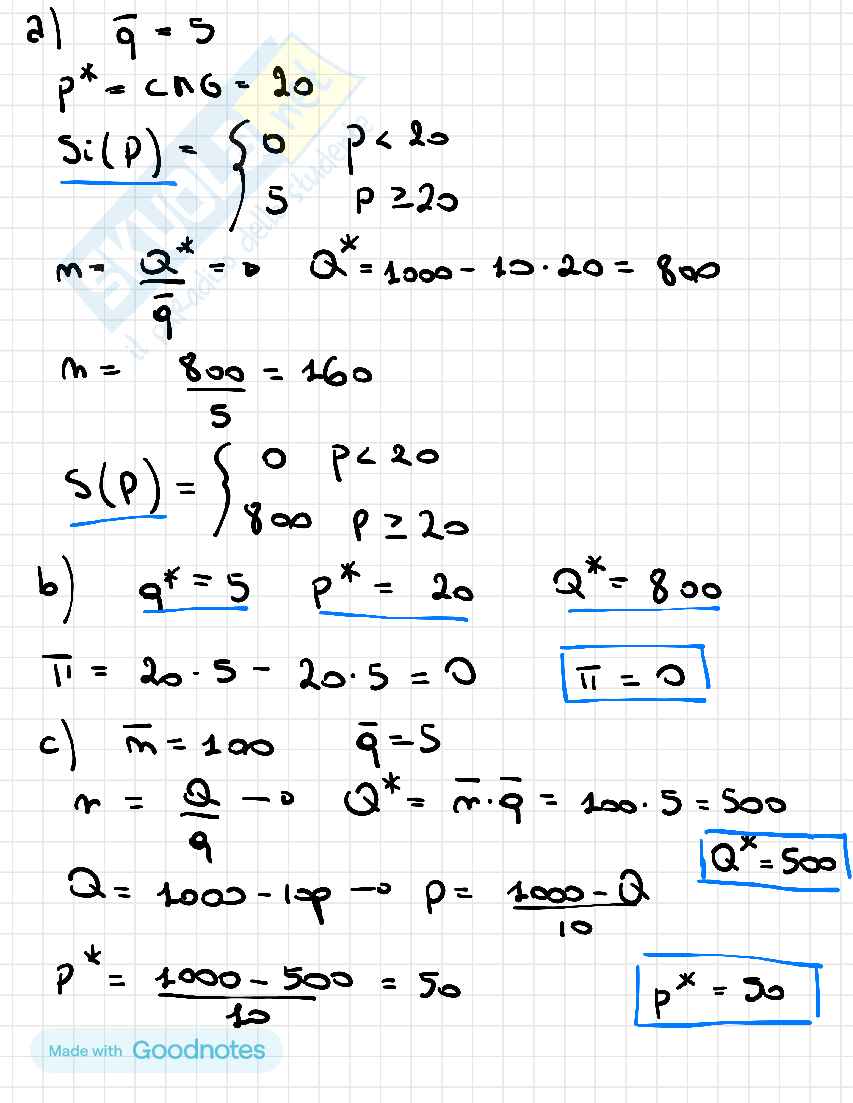 a) q̅ = 5
p* = CMG = 20
Si(P) = { 0 p < 20
5 p ≥ 20
m = Q*/q̅ => Q* = 1000 - 10 · 20 = 800
m = 800/5 = 160
S(P) = { 0 p < 20
800 p ≥ 20
b) q* = 5 p* = 20 Q* = 800
π = 20 · 5 - 20 · 5 = 0 π = 0
c) m̅ = 100 q̅ = 5
n = Q/q → Q* = n̅ · q̅ = 100 · 5 = 500
Q* = 500
Q = 1000 - 10p → p = 1000 - Q/10
p* = 1000 - 500/10 = 50 p* = 50
Made with Goodnotes
SKUOLA.net
il paradiso dello studente